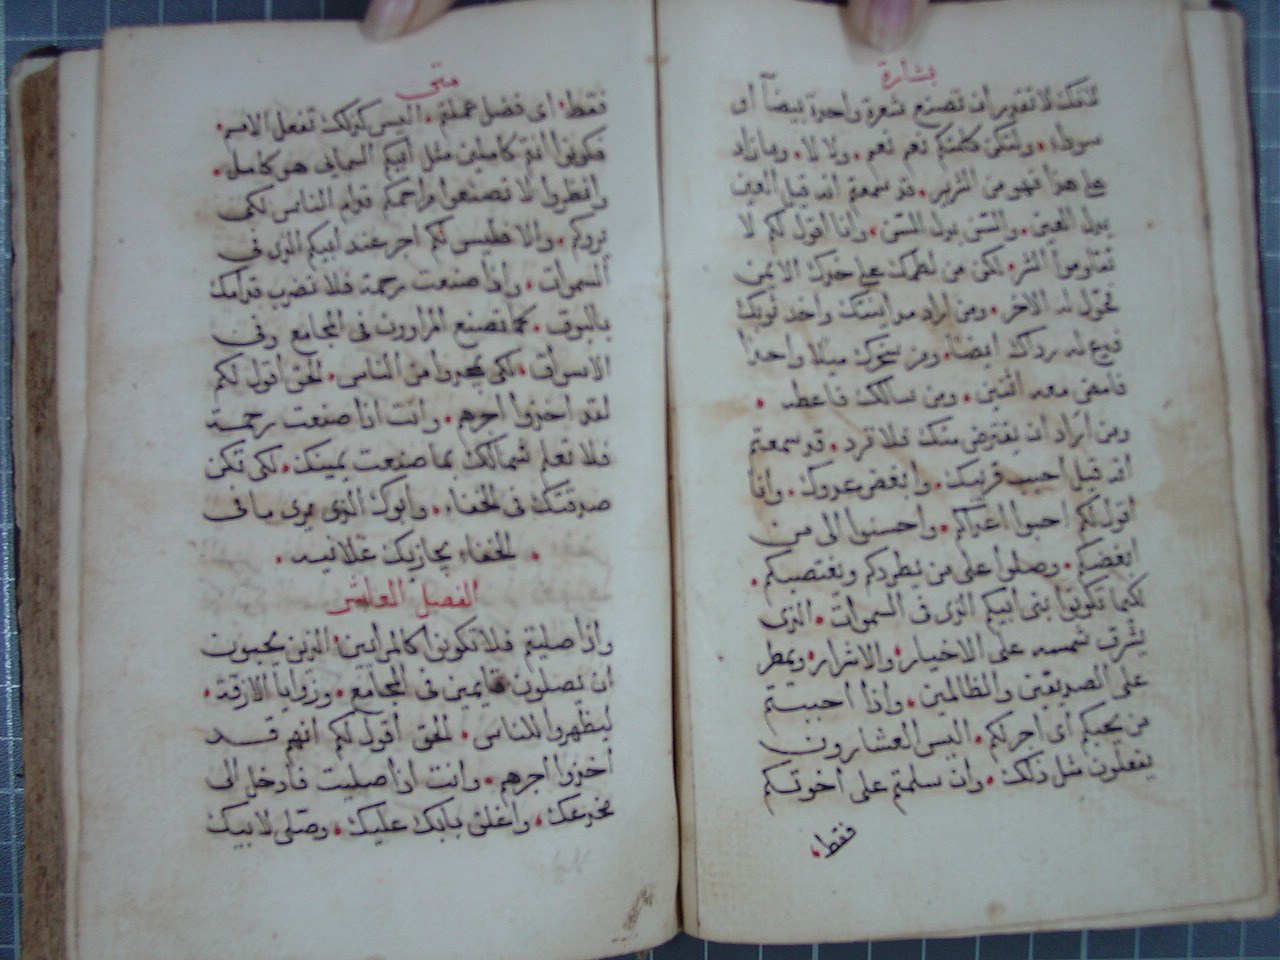 بشارة
لانك لا تقدر ان تصنع شعرة واحدة بيضآ او
سودآء. ولتكن كلمتكم نعم نعم. ولا لا. وما زاد
على هذا فهو من الشرير. قد سمعتم انه قيل العين
بدل العين. والسّن بدل السّن. وانا اقول لكم لا
تقاوموا الشر. لكن من لطمك على خدك الايمن
فحوّل له الاخر. ومن اراد واخذ ثوبك
فدع له رداك ايضًا. ومن سخرك ميلا واحدًا
فامضى معه اثنين. ومن سالك فاعطه.
ومن اراد ان يقترض منك فلا ترد. قد سمعتم
انه قيل احبب قريبك. وابغض عدوك. وانا
اقول لكم احبوا اعداكم. واحسنوا الى من
ابغضكم. وصلوا على من يطردكم ويغتصبكم.
لكيما تكونوا بنى ابيكم الذى فى السموات. الذى
يشرق شمسه على الاخيار. والاشرار. ويمطر
على الصديقين والظالمين. واذا احببتم
من يحبكم اى اجر لكم. اليس العشارون
يفعلون مثل ذلك. وان سلمتم على اخوتكم
فقط.
متى
فقط. اى فضل عملتم. اليس كذلك تفعل الامم.
فكونوا انتم كاملين مثل ابيكم السمايى هو كامل.
وانظروا لا تصنعوا مراحمكم قدام الناس لكى
يروكم. والا فليس لكم اجر عند ابيكم الذى فى
السموات. واذا صنعت رحمة فلا تضرب قدامك
بالبوق. كما تصنع المراوون فى المجامع وفى
الاسواق. لكى يمجدوا من الناس. الحق اقول لكم
لقد اخذوا اجرهم. وانت اذا صنعت رحمة
فلا تعلم شمالك بما صنعت يمينك. لكى تكن
صدقتك فى الخفاء. وابوك الذى يرى ما فى
الخفاء يجازيك علانيه.
الفصل العاشر
واذا صليتم فلا تكونوا كالمرايين. الذين يحبون
ان يصلون قايمين فى المجامع. وزوايا الازقة.
ليظهروا للناس. الحق اقول لكم انهم قد
اخذوا اجرهم. وانت اذا صليت فادخل الى
مخدعك. واغلق بابك عليك. وصلى لابيك